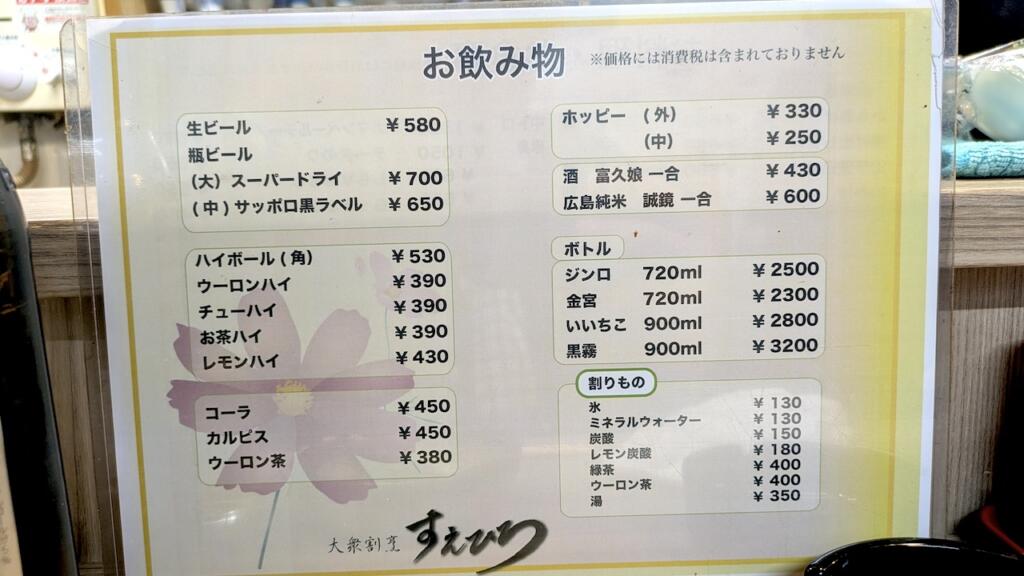 お飲み物 ※価格には消費税は含まれておりません
生ビール ¥580
瓶ビール
(大) スーパードライ ¥700
(中) サッポロ黒ラベル ¥650
ハイボール (角) ¥530
ウーロンハイ ¥390
チューハイ ¥390
お茶ハイ ¥390
レモンハイ ¥430
コーラ ¥450
カルピス ¥450
ウーロン茶 ¥380
ホッピー (外) ¥330
(中) ¥250
酒 富久娘 一合 ¥430
広島純米 誠鏡 一合 ¥600
ボトル
ジンロ 720ml ¥2500
金宮 720ml ¥2300
いいちこ 900ml ¥2800
黒霧 900ml ¥3200
割りもの
氷 ¥130
ミネラルウォーター ¥130
炭酸 ¥150
レモン炭酸 ¥180
緑茶 ¥400
ウーロン茶 ¥400
湯 ¥350
大衆割烹 すえひろ